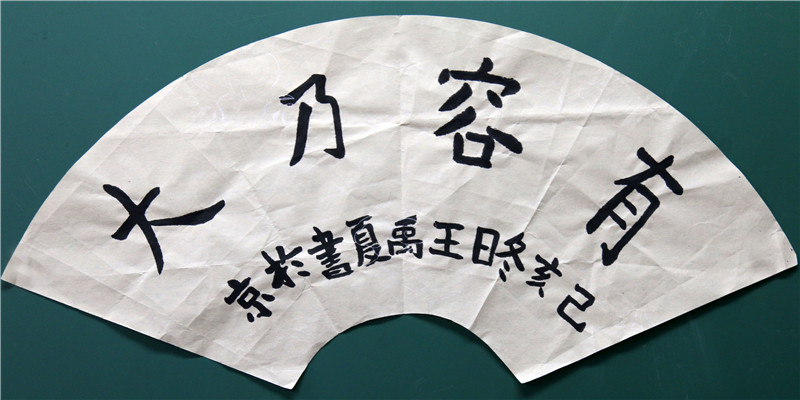 有容乃大
己亥冬日王禹夏書於京